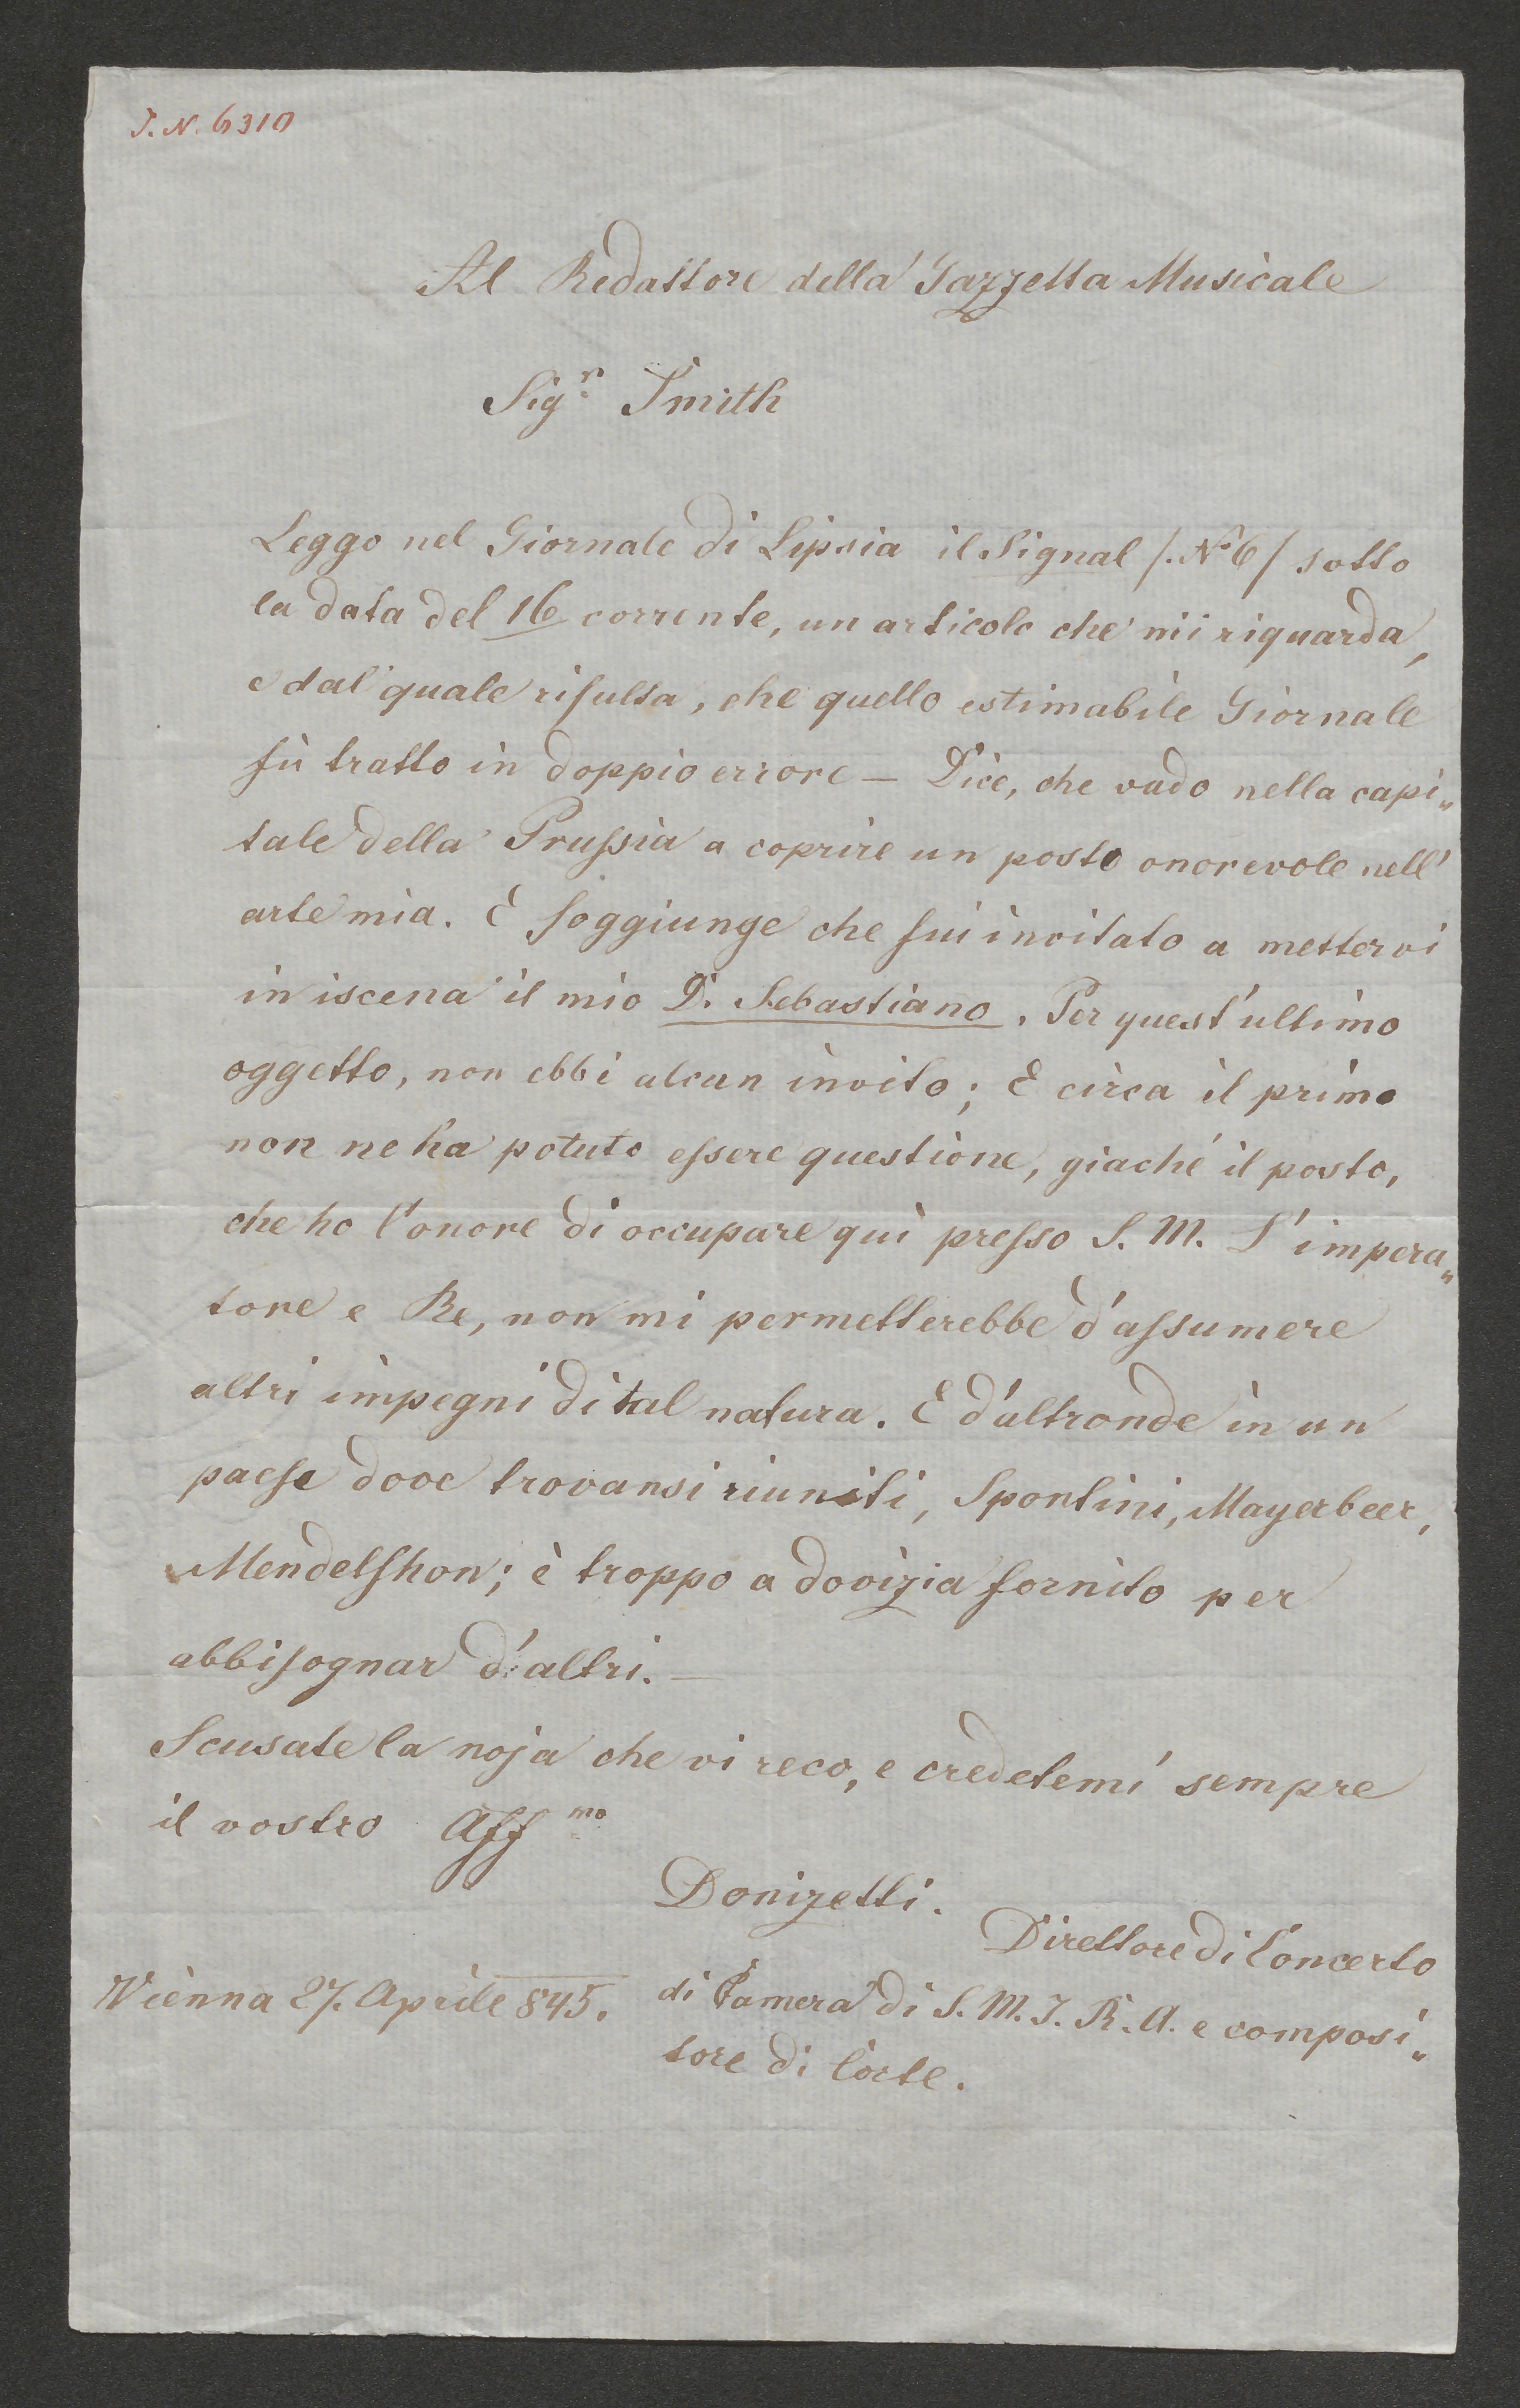 J. N. 6310
Al Redattore della Gazzetta Musicale
Sig.r Smith
Leggo nel Giornale di Lipsia il Signal /. No 6 / sotto
la data del 16 corrente, un articolo che mi riguarda,
e dal quale risulta, che quello estimabile Giornale
fù tratto in doppio errore — Dice, che vado nella capi„
tale della Prussia a coprire un posto onorevole nell'
arte mia. E soggiunge che fui invitato a mettervi
in iscena il mio D. Sebastiano. Per quest'ultimo
oggetto, non ebbi alcun invito; E circa il primo
non ne ha potuto essere questione, giaché il posto,
che ho l'onore di occupare quì presso S. M. L'impera„
tore e Re, non mi permetterebbe d'assumere
altri impegni di tal natura. E d'altronde in un
paese dove trovansi riuniti, Spontini, Mayerbeer,
Mendelshon; è troppo a dovizia fornito per
abbisognar d'altri. —
Scusate la noja che vi reco, e credetemi sempre
il vostro Aff mo
Donizetti.
Direttore di Concerto
di Camera di S. M. I. R. A. e composi„
tore di Corte.
Vienna 27. Aprile 845.